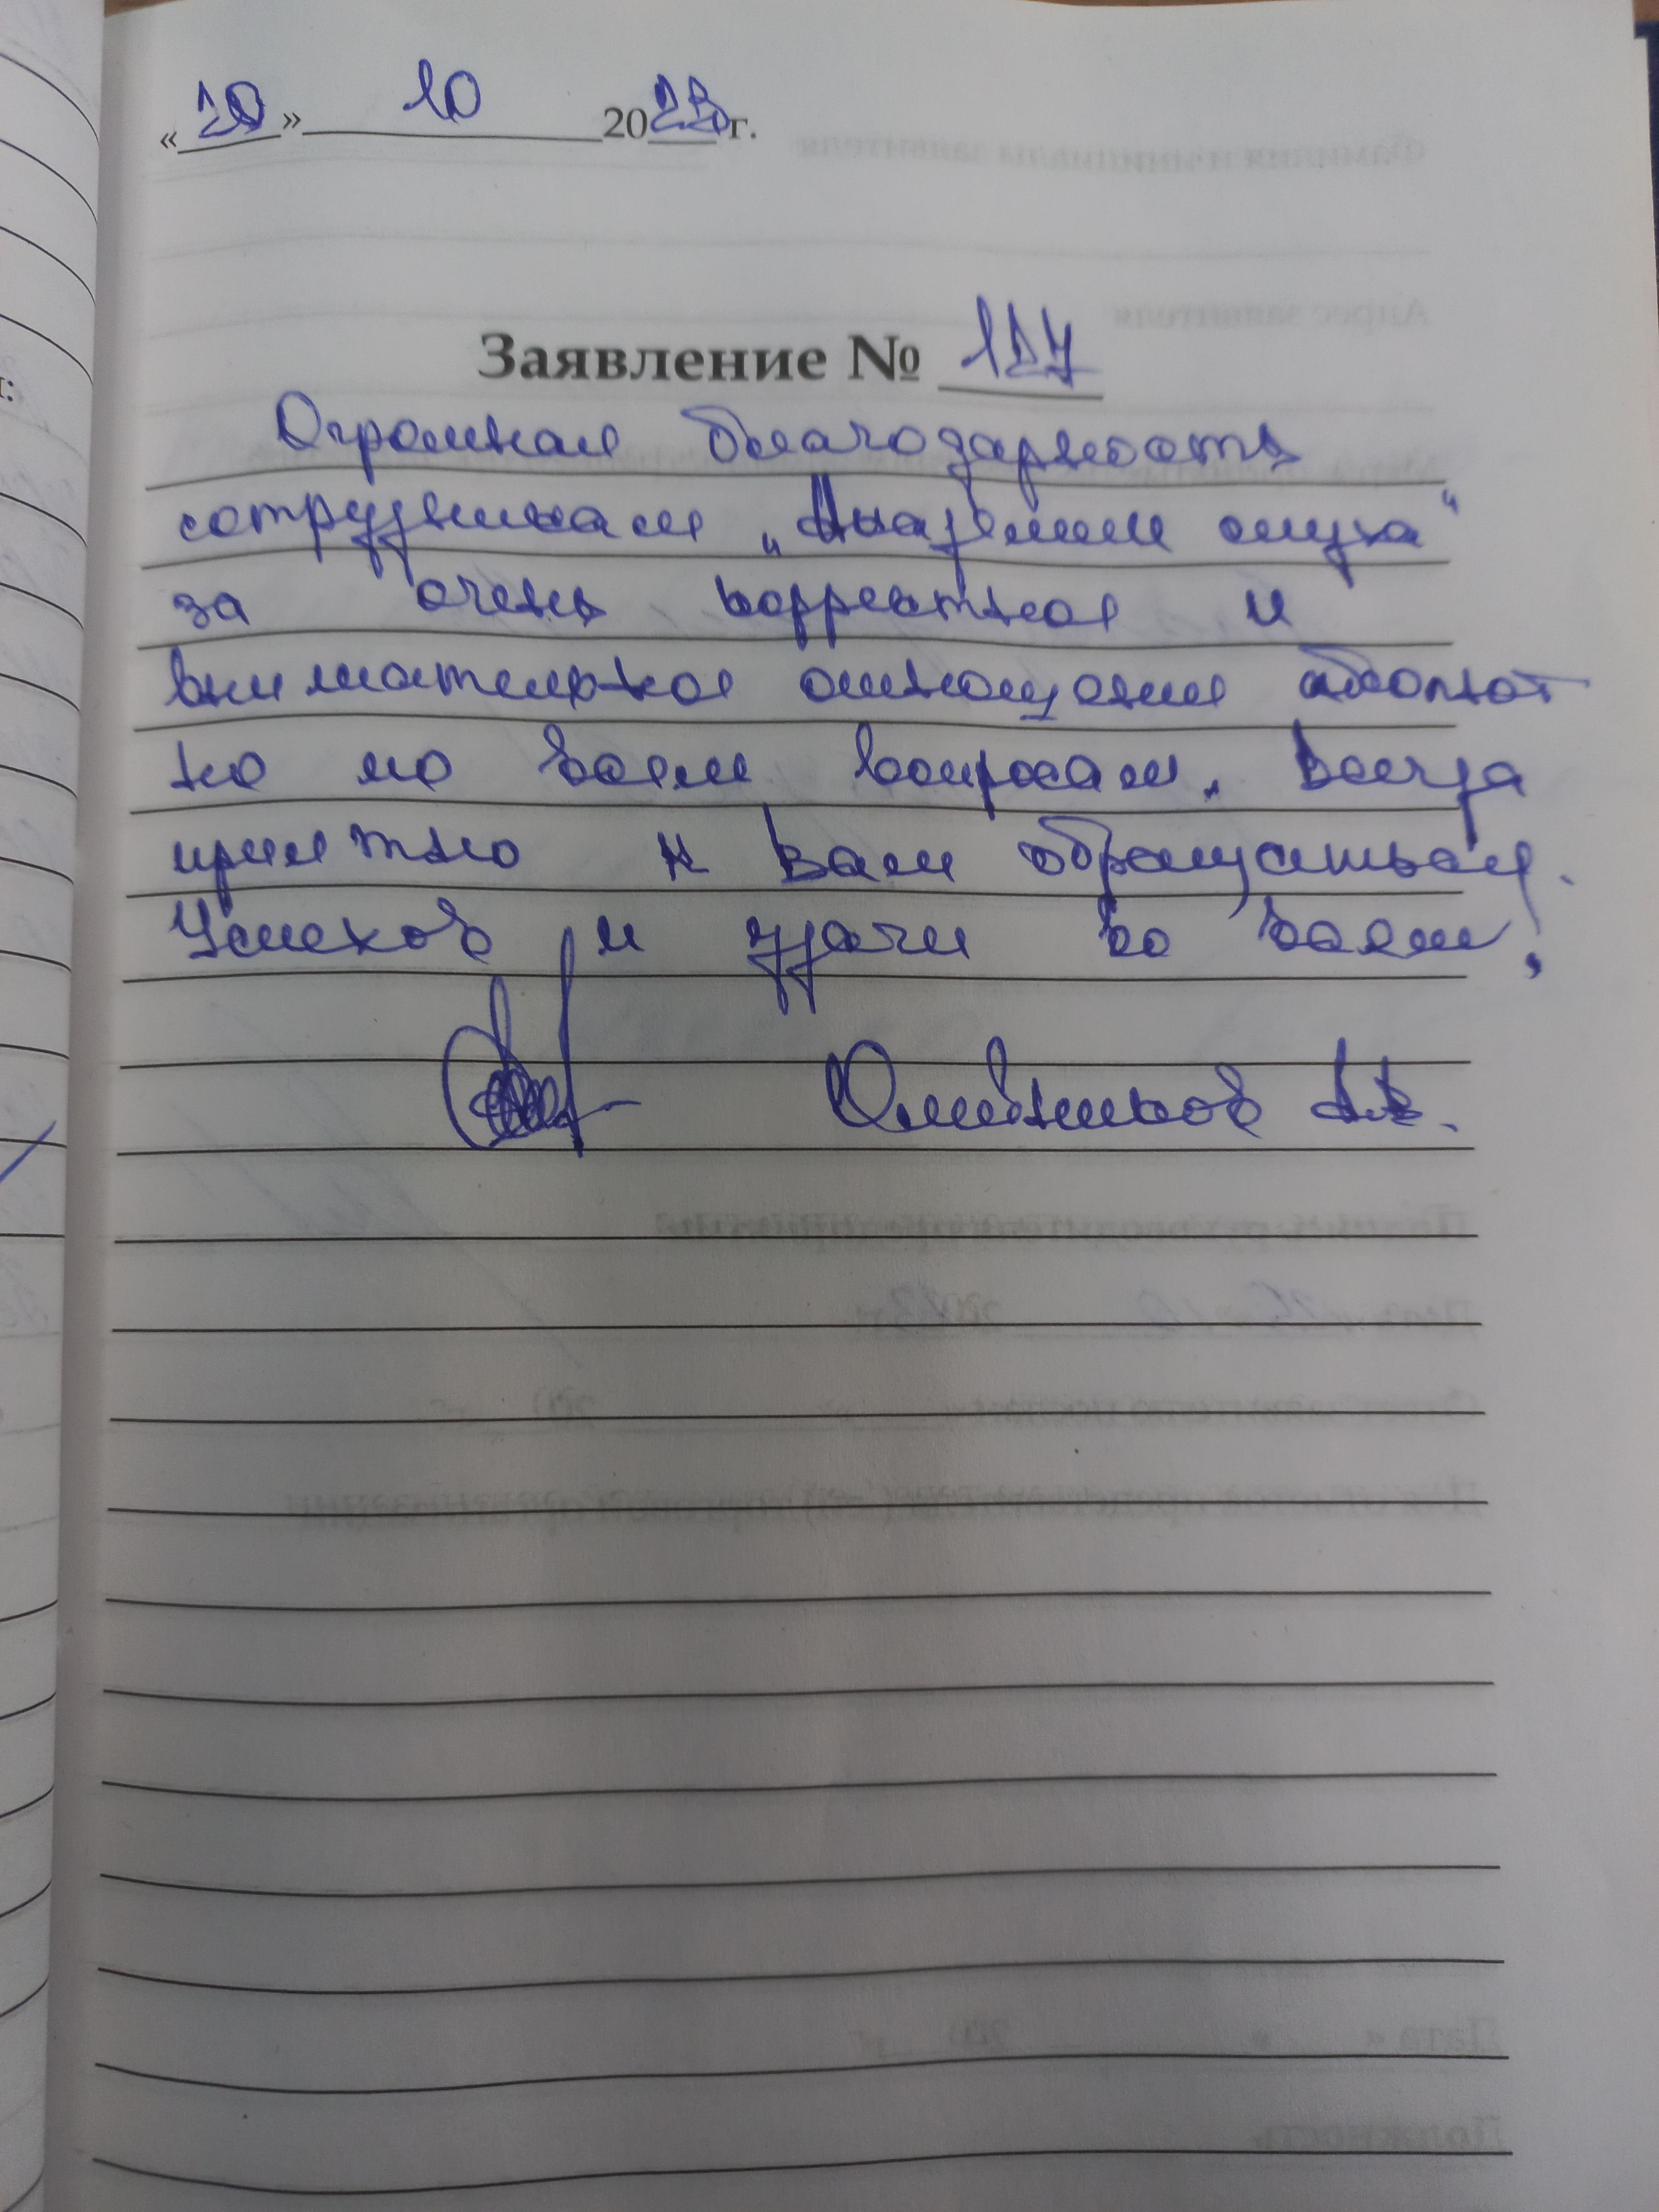 «20» 10 2023 г.
Заявление № 127
Огромная благодарность
сотрудникам „Академии слуха“
за очень корректное и
внимательное отношение абсолют
но по всем вопросам. Всегда
приятно к Вам обращаться.
Успехов и удачи во всем!